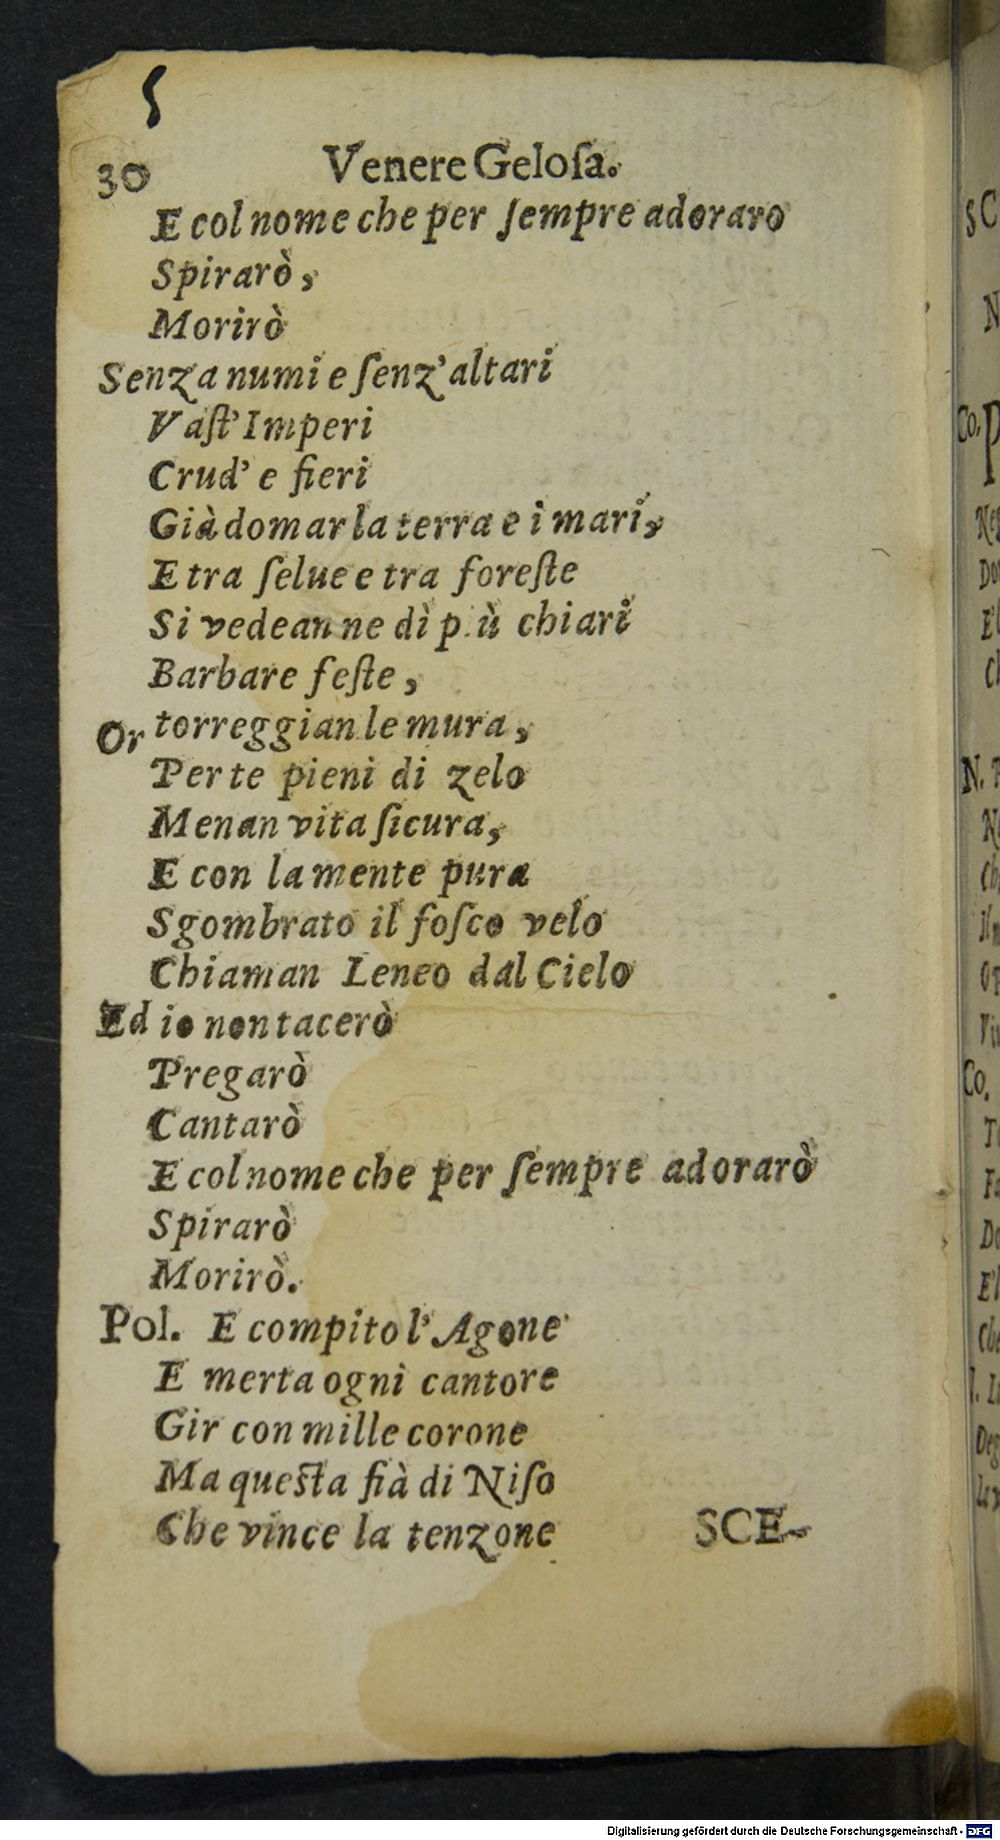 30 Venere Geloſa.
E col nome che per ſempre adoraro
Spirarò,
Morirò
Senza numi e ſenz' altari
Vaſt' Imperi
Crud' e fieri
Già domar la terra e i mari,
E tra ſelue e tra foreſte
Si vedean ne dì p.ù chiari
Barbare feſte,
Or torreggian le mura,
Per te pieni di zelo
Menan vita ſicura,
E con la mente pura
Sgombrato il foſco velo
Chiaman Leneo dal Cielo
Ed io non tacerò
Pregarò
Cantarò
E col nome che per ſempre adorarò
Spirarò
Morirò.
Pol. E compito l'Agone
E merta ogni cantore
Gir con mille corone
Ma queſta fià di Niſo
Che vince la tenzone
SCE-
Digitalisierung gefördert durch die Deutsche Forschungsgemeinschaft - DFG